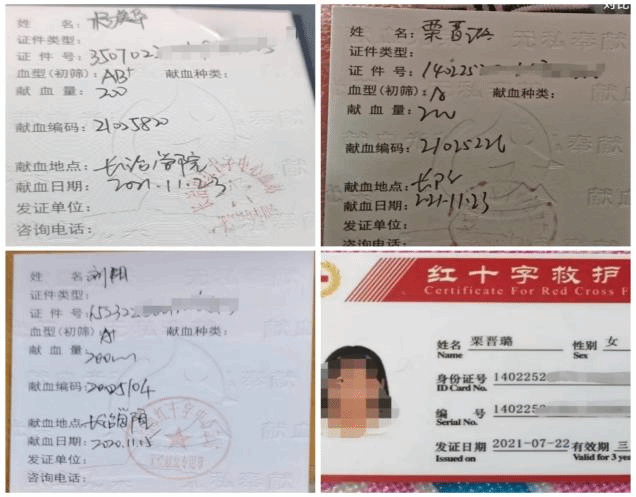 对比
姓 名：
证件类型：
证 件 号：350702
血型(初筛)：AB+ 献血种类：
献 血 量：200
献血编码：21025820
献血地点：长治学院
献血日期：2021.11.23
发证单位：
咨询电话：
无私奉献
姓 名：栗晋璐
证件类型：
证 件 号：1402252
血型(初筛)：A 献血种类：
献 血 量：200
献血编码：2102522
献血地点：长
献血日期：2021.11.23
发证单位：
咨询电话：
姓 名：刘阳
证件类型：
证 件 号：152322
血型(初筛)：A+ 献血种类：
献 血 量：200ml
献血编码：20025104
献血地点：长治学院
献血日期：2020.11.15
发证单位：
咨询电话：
红十字救护
Certificate For Red Cross F
姓名 栗晋璐 性别 女
Name Sex
身份证号 1402252
ID Card No.
编 号 1402252
Serial No.
发证日期 2021-07-22 有效期 三
Issued on Valid for 3 yea